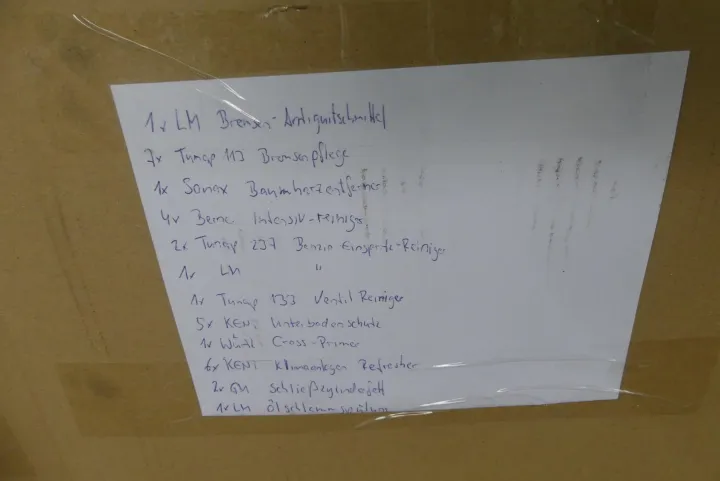 1x LM Bremsen-Antiquitschmittel
7x Tunap 113 Bremsenpflege
1x Sonax Baumharzentferner
4x Berne Intensiv-reiniger
2x Tunap 237 Benzin Einspritz-Reiniger
1x LM "
1x Tunap 133 Ventil Reiniger
5x KENT Unterbodenschutz
1x Würth Cross-Primer
6x KENT Klimaanlagen Refresher
2x GM
1x LM Ölschlammspülung